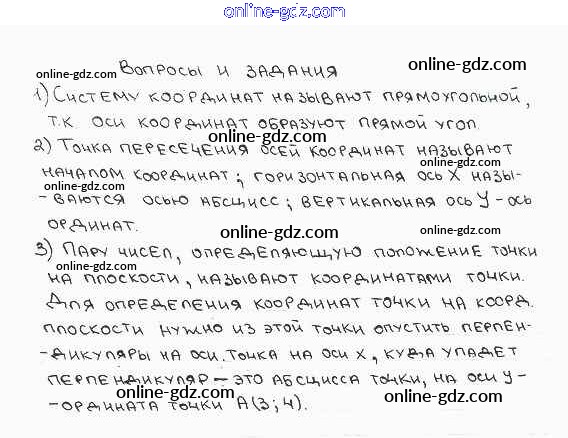 online-gdz.com
Вопросы и задания
online-gdz.com
online-gdz.com
1) Систему координат называют прямоугольной,
online-gdz.com
т.к оси координат образуют прямой угол.
online-gdz.com
2) Точка пересечения осей координат называют
online-gdz.com
началом координат; горизонтальная ось X назы-
online-gdz.com
-ваются осью абсцисс; вертикальная ось У - ось
ординат.
online-gdz.com
online-gdz.com
3) Пару чисел, определяющую положение точки
online-gdz.com
на плоскости, называют координатами точки.
online-gdz.com
Для определения координат точки на коорд.
плоскости нужно из этой точки опустить перпен-
online-gdz.com
-дикуляры на оси. Точка на оси X, куда упадет
перпендикуляр - это абсцисса точки, на оси У-
online-gdz.com
online-gdz.com
-ордината точки А(3;4).